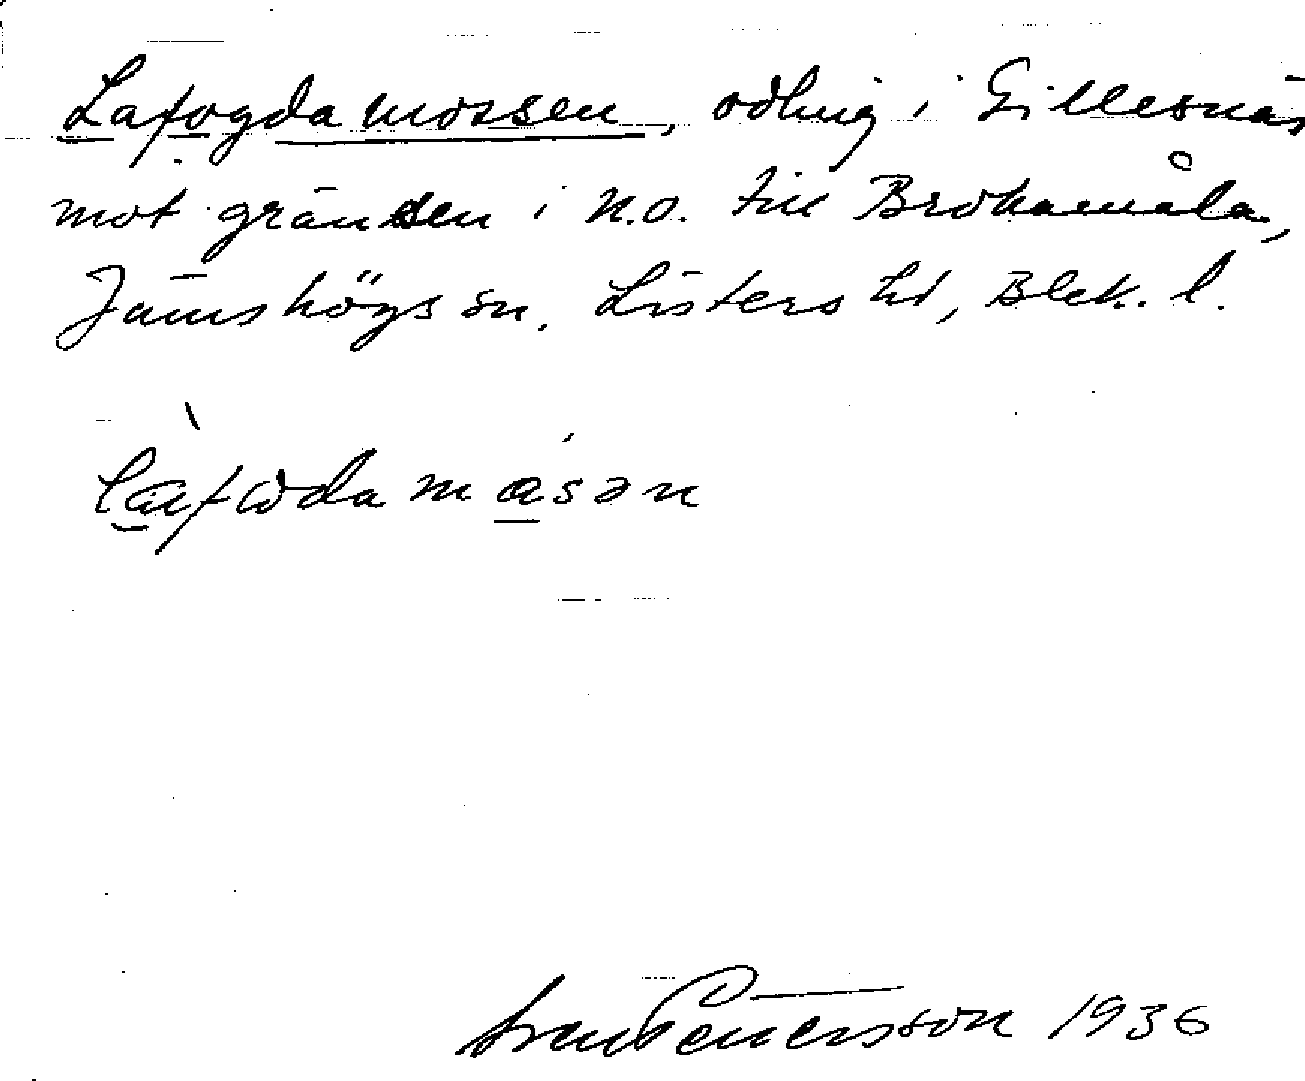 Lafogdamossen, odling i Gillesnäs
mot gränsen i N.O. till Brokamåla,
Jämshögs sn. Listers hd, Blek. l.
Sven Benersson 1936